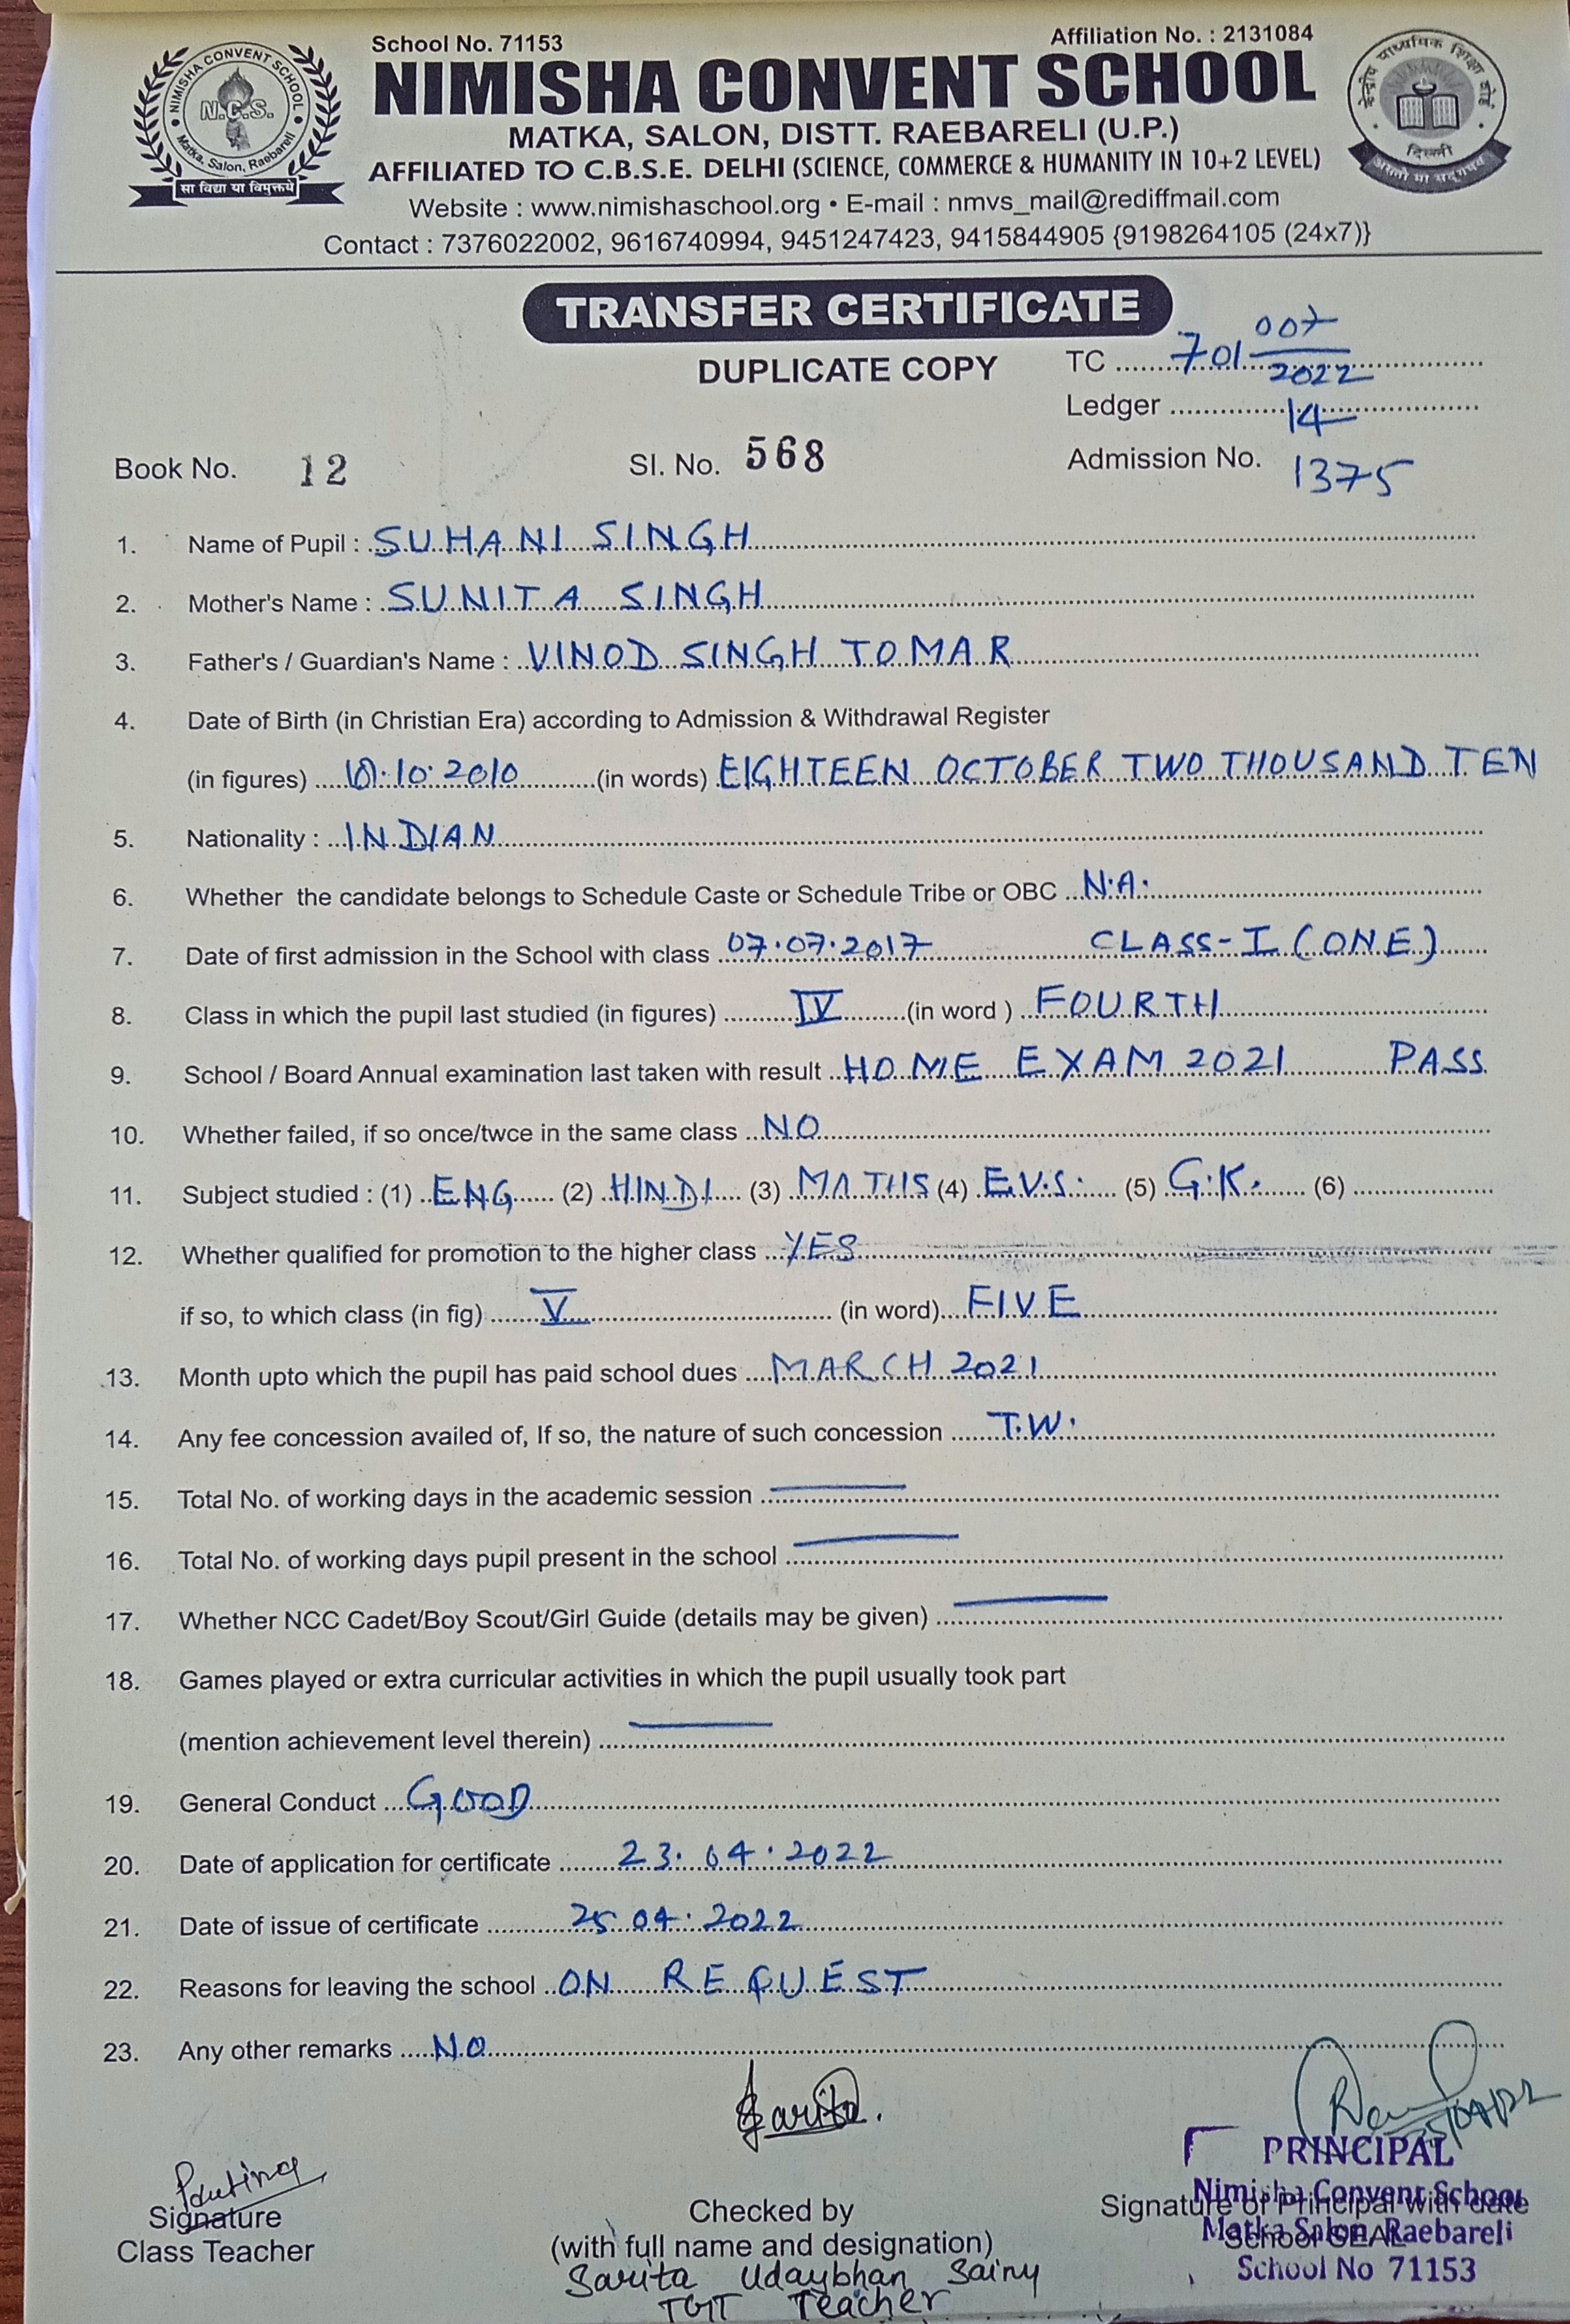 School No. 71153
Affiliation No. : 2131084
NIMISHA CONVENT SCHOOL
MATKA, SALON, DISTT. RAEBARELI (U.P.)
AFFILIATED TO C.B.S.E. DELHI (SCIENCE, COMMERCE & HUMANITY IN 10+2 LEVEL)
Website : www.nimishaschool.org • E-mail : nmvs_mail@rediffmail.com
Contact : 7376022002, 9616740994, 9451247423, 9415844905 {9198264105 (24x7)}
NIMISHA CONVENT SCHOOL
N.C.S.
Matka, Salon, Raebareli
सा विद्या या विमुक्तये
केन्द्रीय माध्यमिक शिक्षा बोर्ड
दिल्ली
असतो मा सद्गमय
TRANSFER CERTIFICATE
DUPLICATE COPY
TC 701 007/2022
Ledger 14
Book No. 12 Sl. No. 568 Admission No. 1375
1. Name of Pupil : SUHANI SINGH
2. Mother's Name : SUNITA SINGH
3. Father's / Guardian's Name : VINOD SINGH TOMAR
4. Date of Birth (in Christian Era) according to Admission & Withdrawal Register
(in figures) 10.2010 (in words) EIGHTEEN OCTOBER TWO THOUSAND TEN
5. Nationality : INDIAN
6. Whether the candidate belongs to Schedule Caste or Schedule Tribe or OBC N.A.
7. Date of first admission in the School with class 07.07.2017 CLASS-I (ONE)
8. Class in which the pupil last studied (in figures) IV (in word ) FOURTH
9. School / Board Annual examination last taken with result HOME EXAM 2021 PASS
10. Whether failed, if so once/twce in the same class NO
11. Subject studied : (1) ENG (2) HINDI (3) MATHS (4) E.V.S. (5) G.K. (6)
12. Whether qualified for promotion to the higher class YES
if so, to which class (in fig) V (in word) FIVE
13. Month upto which the pupil has paid school dues MARCH 2021
14. Any fee concession availed of, If so, the nature of such concession T.W.
15. Total No. of working days in the academic session
16. Total No. of working days pupil present in the school
17. Whether NCC Cadet/Boy Scout/Girl Guide (details may be given)
18. Games played or extra curricular activities in which the pupil usually took part
(mention achievement level therein)
19. General Conduct GOOD
20. Date of application for certificate 23.04.2022
21. Date of issue of certificate 25.04.2022
22. Reasons for leaving the school ON REQUEST
23. Any other remarks NO
Sarita.
25/04/22
PRINCIPAL
Nimisha Convent School
Matka Salon, Raebareli
School No 71153
Signature
Class Teacher
Checked by
(with full name and designation)
Sarita Udaybhan Sainy
TGT Teacher
Signature of Principal with date
School SEAL